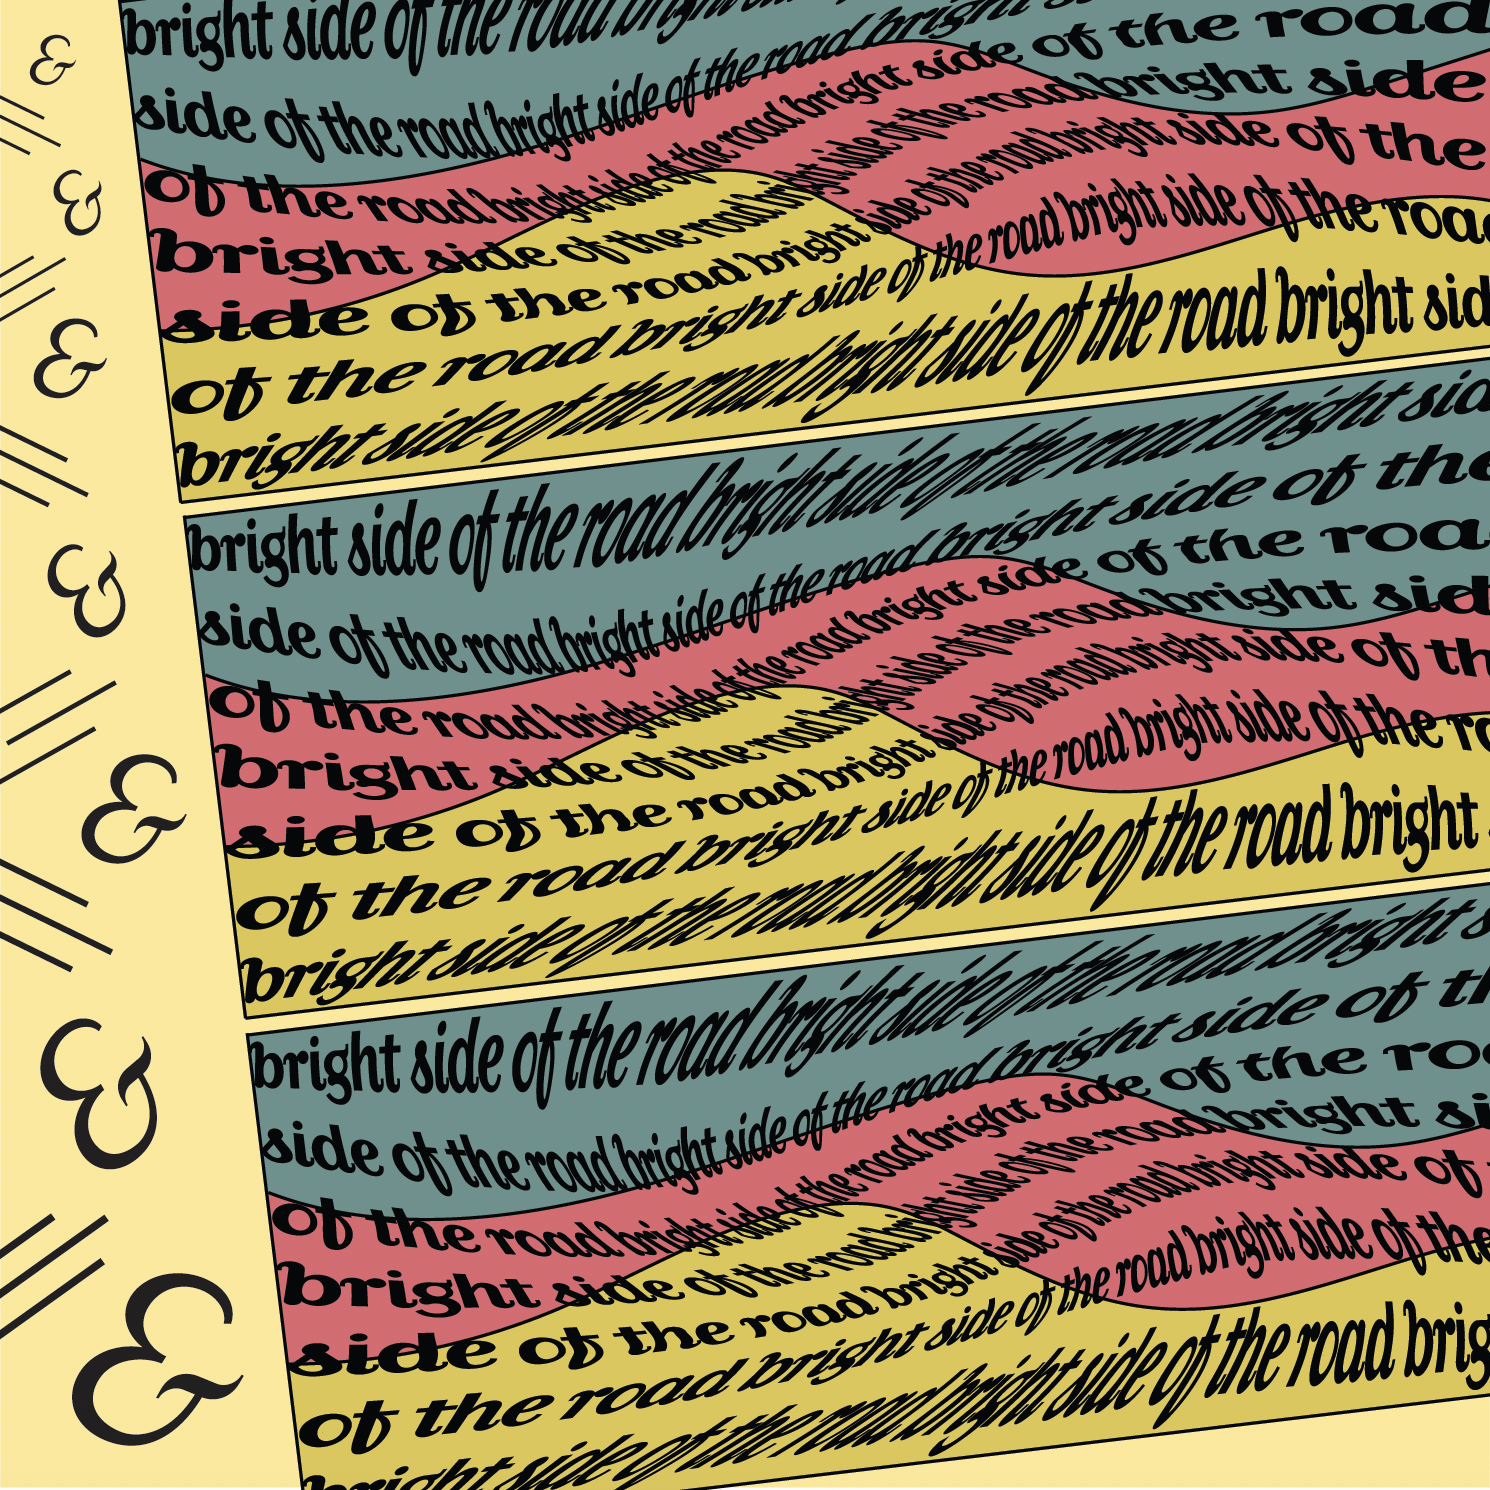 &
&
&
&
&
&
&
bright side of the road bright
side of the road bright side of the road bright
of the road bright side of the road bright side of the road
bright side of the road bright side of the road bright side
side of the road bright side of the road bright side of the
of the road bright side of the road bright side of the road
bright side of the road bright side of the road bright sid
bright side of the road bright side of the road bright sid
side of the road bright side of the road bright side of the
of the road bright side of the road bright side of the roa
bright side of the road bright side of the road bright sid
side of the road bright side of the road bright side of th
of the road bright side of the road bright side of the ro
bright side of the road bright side of the road bright
bright side of the road bright side of the road bright s
side of the road bright side of the road bright side of th
of the road bright side of the road bright side of the ro
bright side of the road bright side of the road bright si
side of the road bright side of the road bright side of
of the road bright side of the road bright side of the
bright side of the road bright side of the road brig